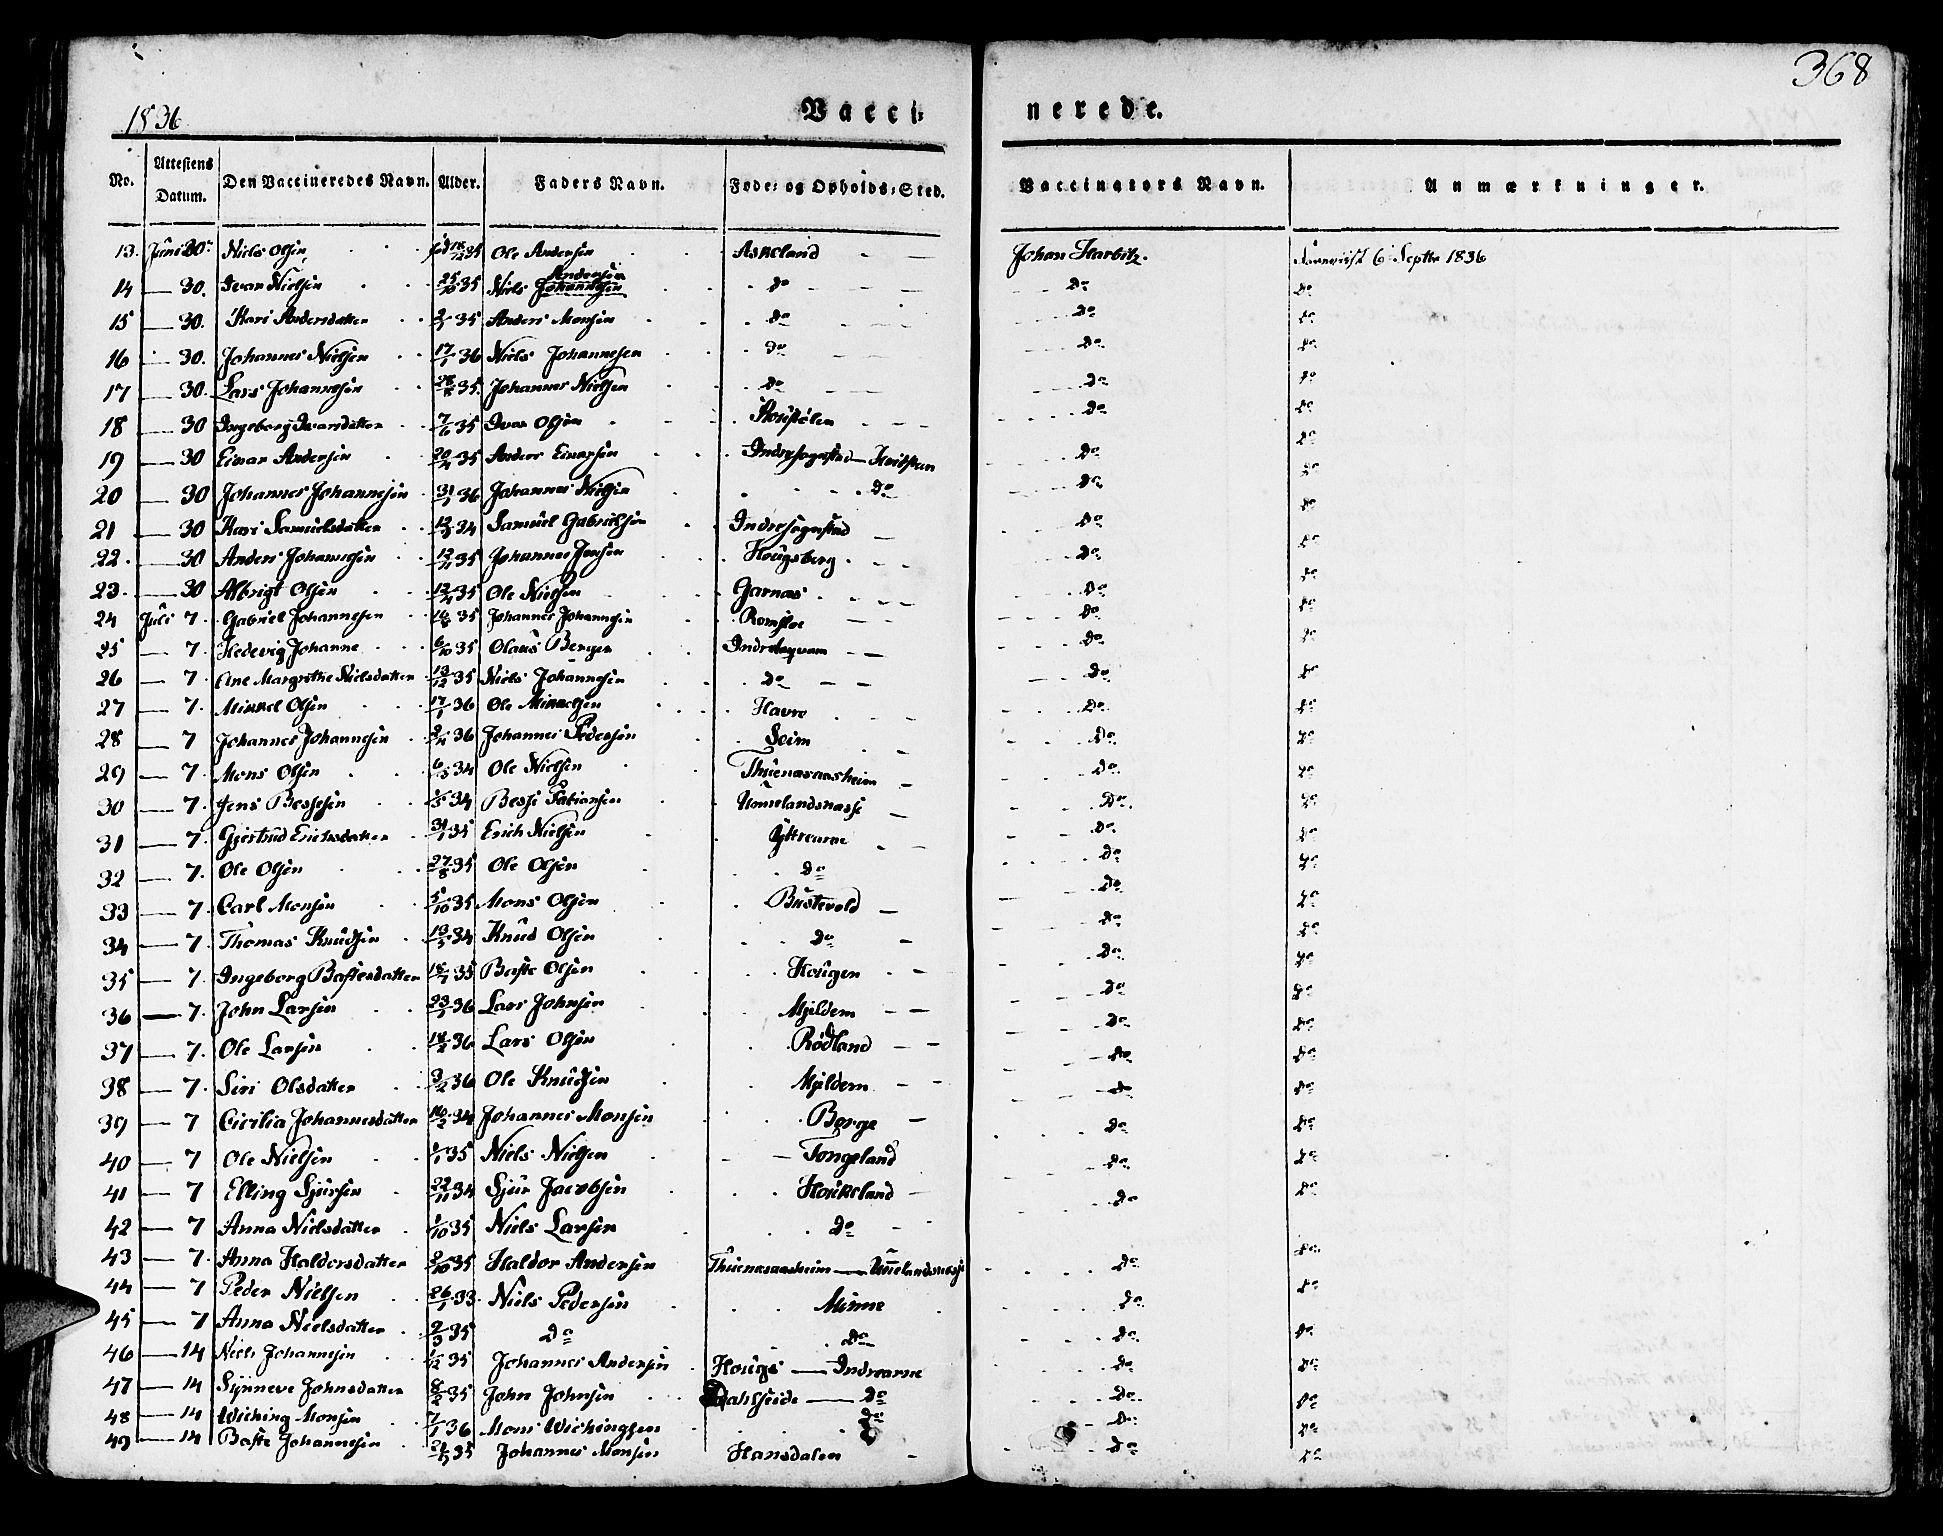 368
1836 Vacci- nerede.
No. Attestens Datum. Den Vaccineredes Navn. Alder. Faders Navn. Føde- og Opholds-Sted. Vaccinators Navn. Anmærkninger.
13. Juni 30 Niels Olsen 35 Ole Andersen Askeland Johan Harbitz. 6 Septbr 1836
14 — 30. Ivar Nielsen 25/10 35 Niels Johannesen Andersen Do Do Do
15 — 30. Kari Andersdatter 35 Anders Monsen Do Do Do
16 30. Johannes Nielsen 17/1 36 Niels Johannesen Do Do Do
17 — 30. Lars Johannesen 35 Johannes Nielsen Do Do Do
18 — 30 Ingeborg Ivarsdatter 7/6 35 Ivar Olsen Do Do
19 — 30 Einar Andersen 20/4 35 Anders Einarsen Do Do
20 — 30 Johannes Johannesen 31/1 36 Johannes Nielsen Do Do Do
21 — 30 Kari Samuelsdatter 34 Samuel Gabrielsen Do Do
22. — 30 Anders Johannesen 35 Johannes Jensen Hougsberg Do Do
23. — 30 Albrigt Olsen 35 Ole Nielsen Garnas Do Do
24 Juli 7. Gabriel Johannesen 16/8 35 Johannes Johannesen Romsloe Do Do
25 — 7. Hedevig Johanne 6/10 35 Olaus Berger Do Do
26 — 7. Ane Margrethe Nielsdatter 13/12 35 Niels Johannesen Do Do Do
27 — 7. Mikkel Olsen 17/1 36 Ole Mikkelsen Havre Do Do
28 — 7 Johannes Johannesen 36 Johannes Pedersen Seim Do Do
29 — 7. Mons Olsen 34 Ole Nielsen Thuenæsaasheim Do Do
30 — 7. Jens Bessesen 34 Besse Fabiansen Do Do
31 — 7. Gjertrud Erichsdatter 31/1 35 Erich Nielsen Yttrearne Do Do
32 — 7. Ole Olsen 27/8 35 Ole Olsen Do Do Do
33 — 7. Carl Monsen 5/10 35 Mons Olsen Bustevold Do Do
34 — 7. Thomas Knudsen 34 Knud Olsen Do Do Do
35 — 7. Ingeborg Bastesdatter 35 Baste Olsen Hougen Do Do
36 — 7. John Larsen 36 Lars Johnsen Mjeldem Do Do
37 — 7. Ole Larsen 36 Lars Olsen Rødland Do Do
38 — 7. Siri Olsdatter 36 Ole Knudsen Mjeldem Do Do
39 — 7 Cicilia Johannesdatter 34 Johannes Monsen Borge Do Do
40 — 7 Ole Nielsen 35 Niels Nielsen Tongeland Do Do
41 — 7 Elling Sjursen 22/11 34 Sjur Jacobsen Houkeland Do Do
42 — 7 Anna Nielsdatter 1/10 35 Niels Larsen Do
43 — 7. Anna Haldorsdatter 35 Haldor Andersen Thuenæsaasheim — Do Do
44 — 7 Peder Nielsen 26/1 33 Niels Pedersen Minne Do Do
45 — 7 Anna Nielsdatter 2/3 35 Do Do Do Do
46 — 14 Niels Johannesen 35 Johannes Andersen Hougs — Indrearne Do Do
47 — 14 Synneve Johnsdatter 35 John Johnsen — Do Do Do
48 — 14 Wiching Monsen 7/1 36 Mons Wichingsen Do Do Do
49 — 14 Baste Johannesen 35 Johannes Monsen Hansdalen Do Do